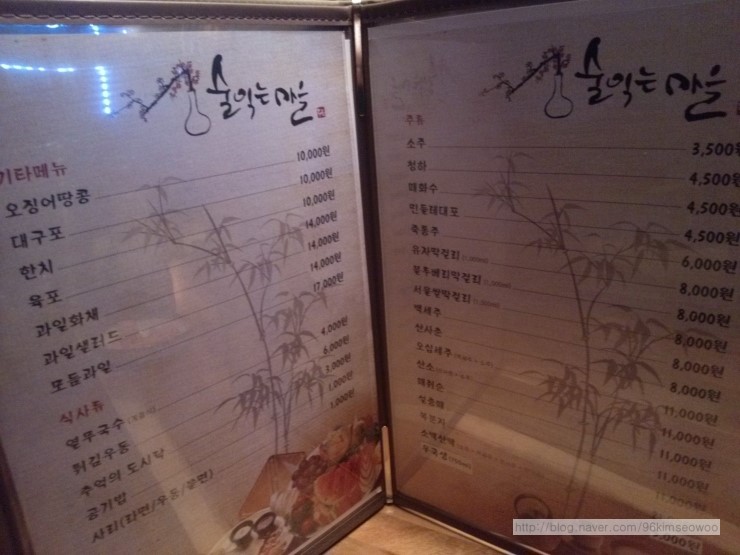 술익는 마을
기타메뉴
오징어땅콩 10,000원
대구포 10,000원
한치 10,000원
육포 14,000원
과일화채 14,000원
과일샐러드 14,000원
모듬과일 17,000원
식사류
열무국수 4,000원
튀김우동 6,000원
추억의 도시락 3,000원
공기밥 1,000원
사리(라면/우동/쫄면) 1,000원
술익는 마을
주류
소주 3,500원
청하 4,500원
매화수 4,500원
민들레대포 4,500원
죽통주 6,000원
유자막걸리 8,000원
블루베리막걸리 8,000원
서울쌀막걸리 8,000원
백세주 8,000원
천사춘 11,000원
오십세주 11,000원
산소 11,000원
매취순
설중매
복분자
http://blog.naver.com/96kimseowoo